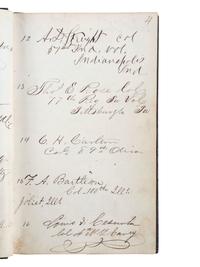 4
12 A. D. Streight Col
51st Ind. Vol.
Indianapolis
Ind
13 Thos E Rose Col
77th Reg Pa Vol
Pittsburgh Pa
14 C. H. Carlton
Col 89th Ohio
15 F. A. Bartleson
Col. 100th Ills.
Joliet Ills
16 Louis P. Cesnola
Col 4th N.Y. Cavy